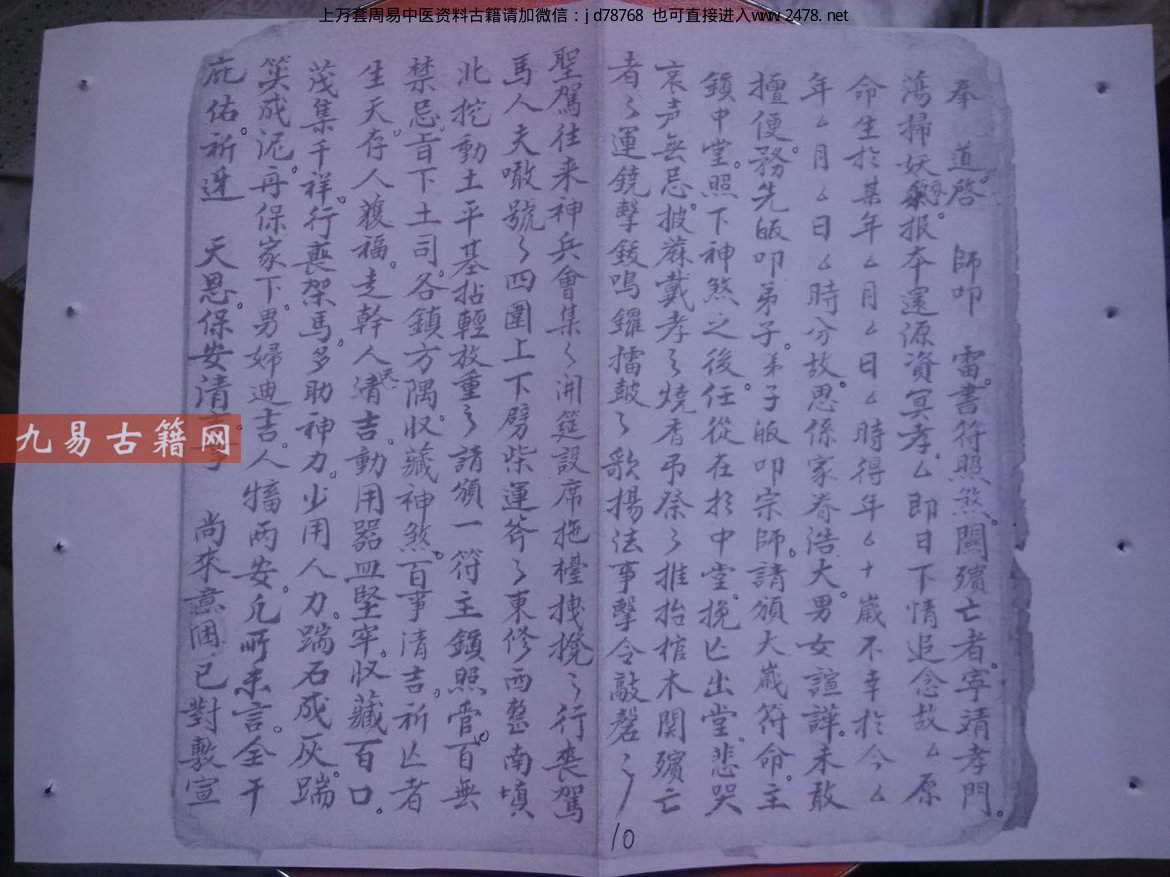 上万套周易中医资料古籍请加微信：jd78768 也可直接进入www.2478.net
奉 道。啓 師叩 雷。書符照煞。関殯亡者。寧清孝門。
蕩掃妖氣。报本還源資冥孝。厶即日下情追念故厶原
命生於某年厶月厶日厶時得年厶十歲不幸於今厶
年厶月厶日厶時分故。思係家眷浩大。男女諠譁。未敢
擅便。務先皈叩弟子。弟子皈叩宗師。請頒大歲符命。主
鎮中堂。照下神煞之後。任從在於中堂。挽亡出堂。悲哭
哀声無忌。披蔴戴孝々燒香吊祭々推抬棺木関殯亡
者々運鐃擊鈸鳴鑼擂鼓々歌揚法事擊令敲磬々
聖駕往来神兵會集々開筵設席拖檯拽攪々行喪駕
馬人夫噉號々四圍上下劈柴運斧々東修西整南填
北挖動土平基拈輕放重々請頒一符主鎮照管。百無
禁忌。旨下土司。各鎮方隅。收藏神煞。百事清吉。祈亡者
生天。存人穫福。走幹人清吉。動用器皿堅牢。收藏百口。
茂集千祥。行喪架馬。多助神力。少用人力。踹石成灰。踹
筫成泥。再保家下。男婦迪吉。人犠两安。凢所未言。全干
庇佑。祈迓 天恩。保安清 尚來意 已對敷宣
九易古籍网
10